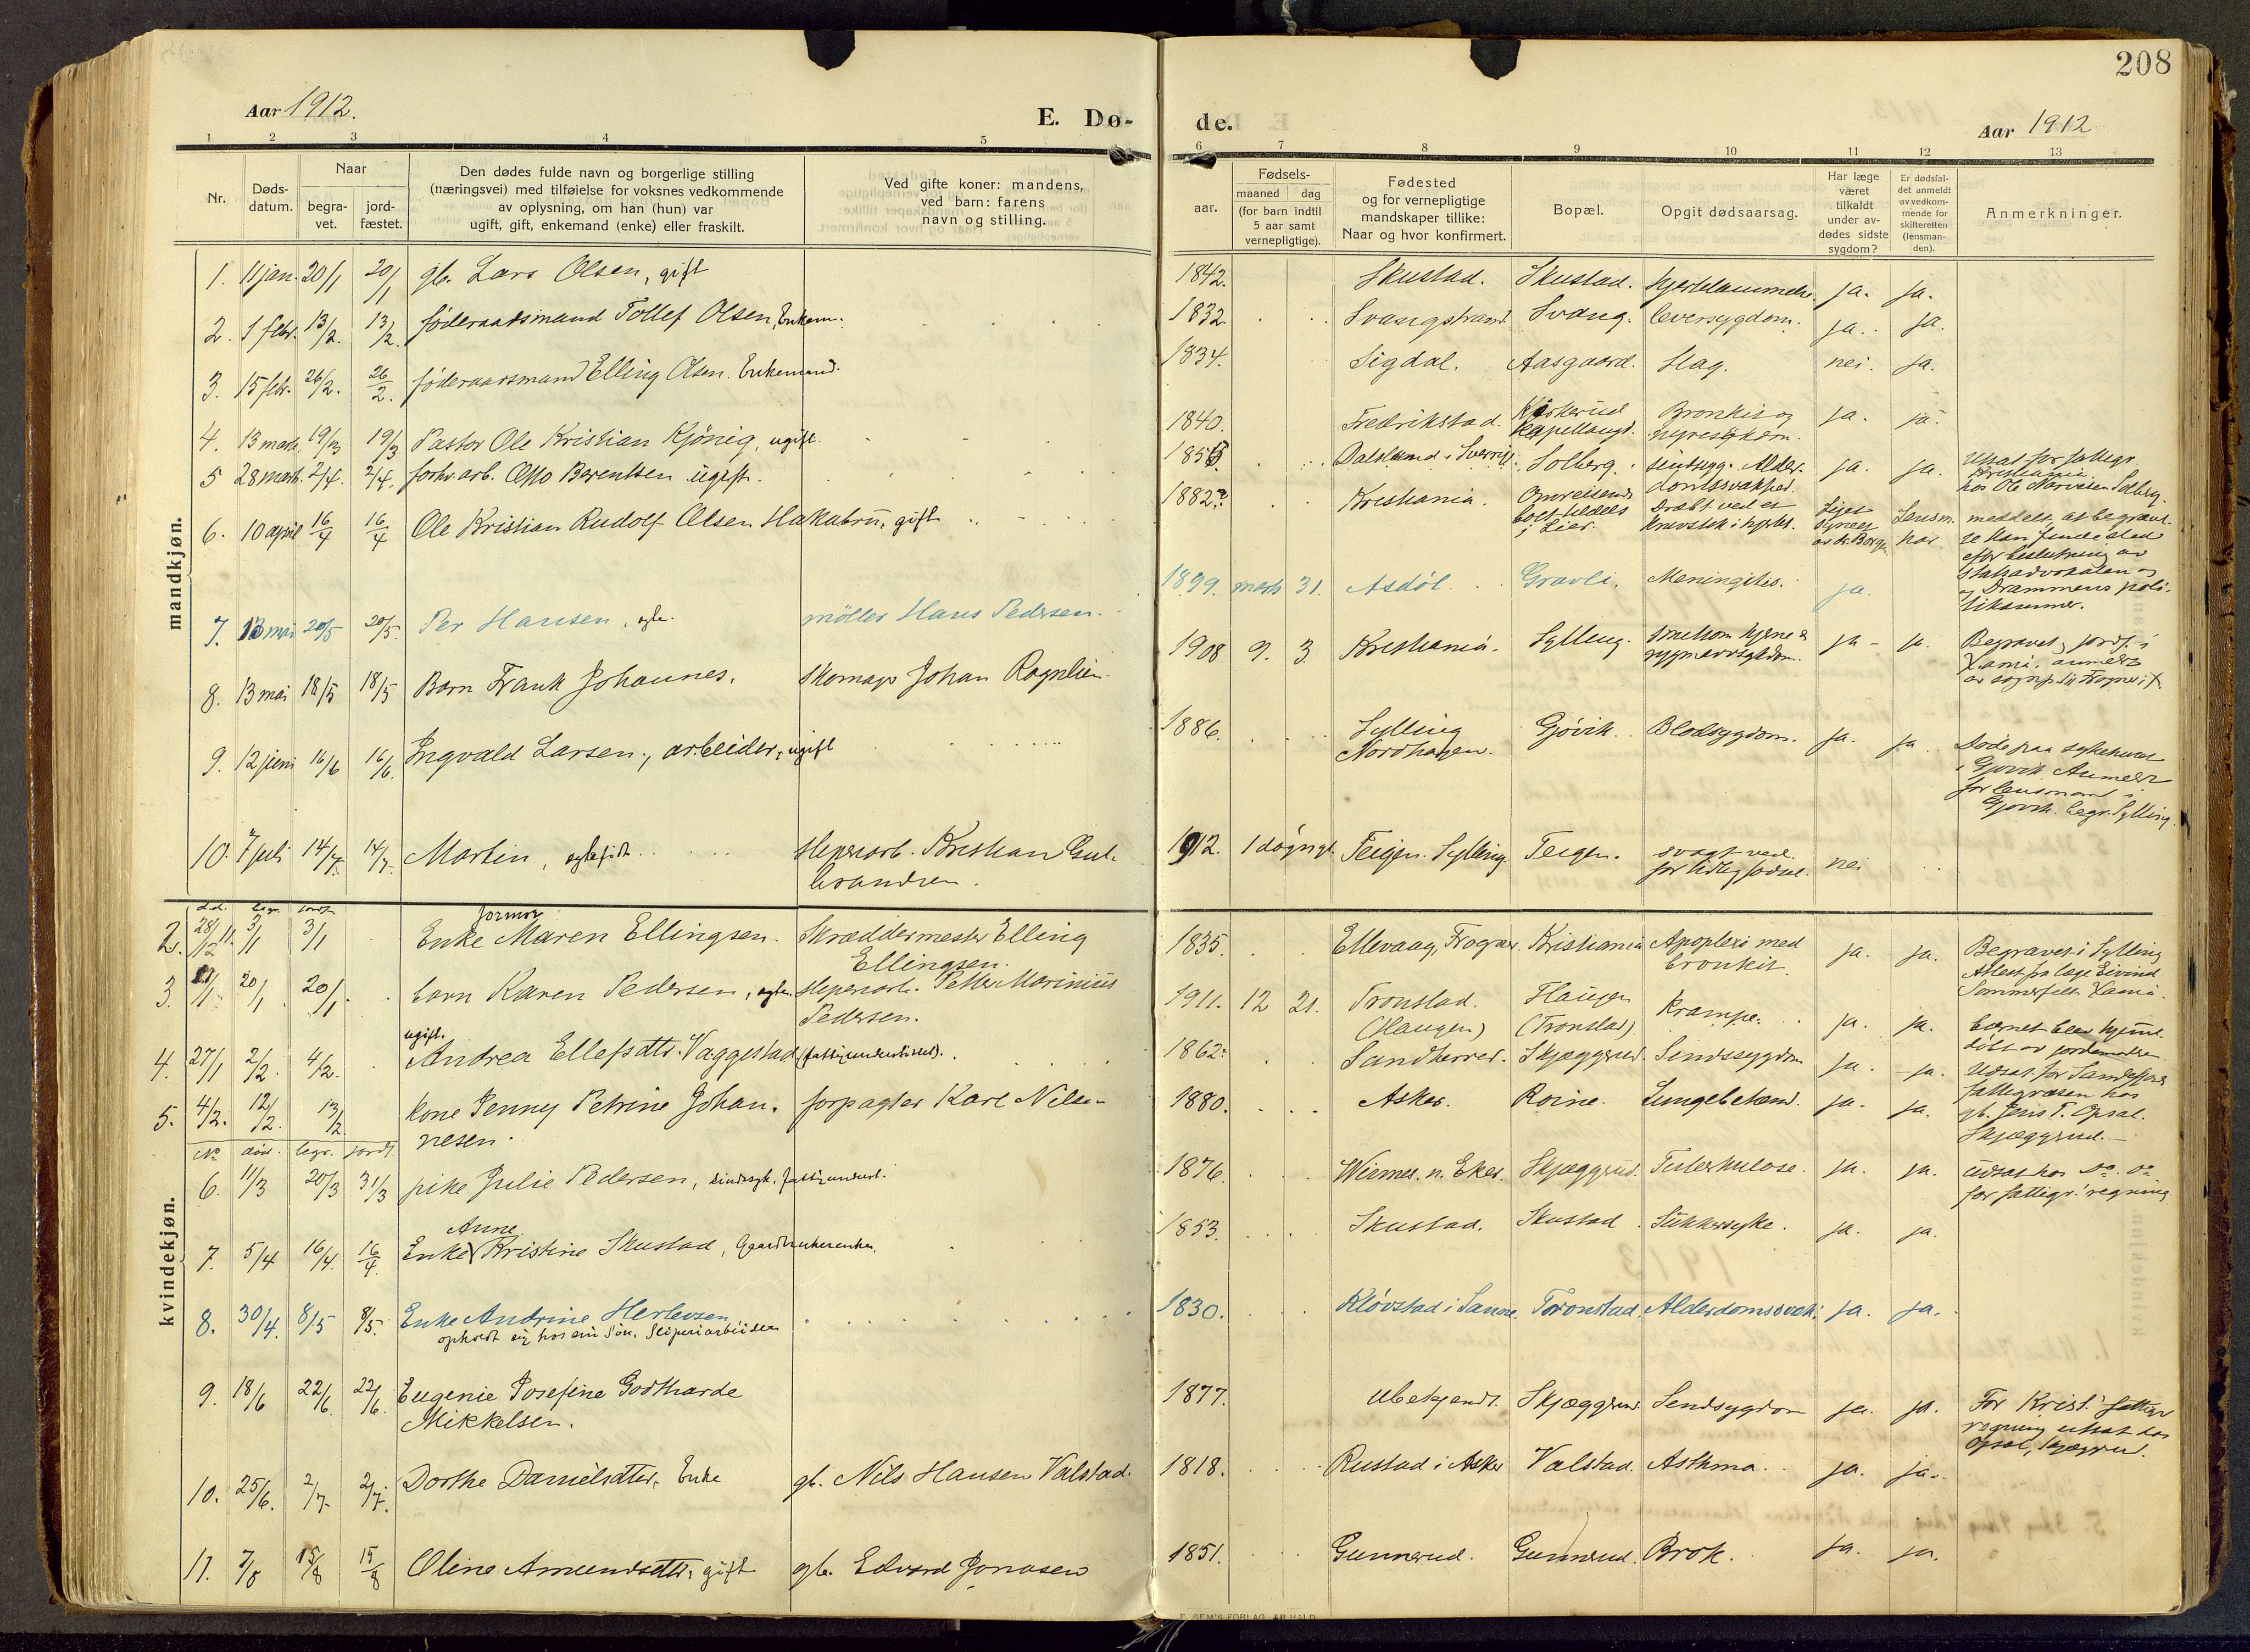 208
Aar 1912.
E. Dø-
de.
Aar 1912
1 2 3 4 5
6 7 8 9 10 11 12 13
Nr.
Døds-
datum.
Naar
begra-
vet.
jord-
fæstet.
Den dødes fulde navn og borgerlige stilling
(næringsvei) med tilføielse for voksnes vedkommende
av oplysning, om han (hun) var
ugift, gift, enkemand (enke) eller fraskilt.
Ved gifte koner: mandens,
ved barn: farens
navn og stilling.
Fødsels-
aar.
maaned dag
(for barn indtil
5 aar samt
vernepligtige).
Fødested
og for vernepligtige
mandskaper tillike:
Naar og hvor konfirmert.
Bopæl.
Opgit dødsaarsag.
Har læge
været
tilkaldt
under av-
dødes sidste
sygdom?
Er dødsfal-
det anmeldt
av vedkom-
mende for
skifteretten
(lensman-
den).
Anmerkninger.
mandkjøn.
1. 11 jan. 20/1 20/1 gb. Lars Olsen, gift
1842. Skustad. Skustad. ja. ja.
2. 1 febr. 13/2. 13/2. føderaadsmand Tollef Olsen, Enkem.
1832 Svangstrand. Svang. leversygdom. ja. ja.
3. 15 febr. 26/2. 26/2. føderaadsmand Elling Olsen. Enkemand.
1834. Sigdal. Aasgaard. Slag. nei. ja.
4. 13 marts 19/3 19/3 Pastor Ole Kristian Kjönig, ugift.
1840. Fredrikstad. Kapellangd. Bronkit og nyresykdom. ja. ja.
5 28 marts 2/4. 2/4. forhv. arb. Otto Berentsen ugift.
1855. Dalsland i Sverrig. Solberg. sindssyg. Alderdomssvakhed. ja. ja. Utsat for fattigv. Kristiania hos Ole Narvesen Solberg.
6. 10 april 16/4 16/4 Ole Kristian Rudolf Olsen Hakabru, gift
1882? Kristiania. Omreisende i Lier. Dræbt ved et knivstik i hjertet. Liget synet av dr. Borgen Lensm. har meddelt, at begravelse kan finde sted efter beslutning av Statsadvokaten og Drammens politikammer.
7. 13 mai 20/5 20/5. Per Hansen, egte.
møller Hans Pedersen.
1899. marts 31. Asdøl. Gravli. Meningites. ja.
8. 13 mai 18/5 18/5 Barn Frank Johannes.
Skomager Johan Rognlien.
1908 9. 3. Kristiania. Sylling. ja - ja. Begravet, jordf. i
9. 12 juni 16/6 16/6. Ingvald Larsen, arbeider, ugift
1886. Sylling Nordhagen. Gjøvik. Blodsygdom. ja. ja. Døde paa sykehuset i Gjøvik. Anmeldt for lensmand i Gjøvik. begr. Sylling.
10. 7 juli 14/7. 14/7. Martin, egtefødt
sliperiarb. Kristian Gulbrandsen.
1912. 1 døgn gl. Teigen. Sylling. Teigen. svagt ved for tidlig fødsel. nei
kvindekjøn.
d.d. begr. jordf.
2. 28/12 11. 3/1 3/1 Enke Maren Ellingsen.
Skræddermester Elling Ellingsen.
1835. Ellevaag, Frogner. Kristiania Apoplexi med bronkit. ja. ja. Begravet i Sylling Attest fra læge Eivind Sommerfelt Xania.
3. 20/1. 20/1. barn Karen Pedersen, egte.
sliperiarb. Petter Marinius Pedersen.
1911. 12 21. Tronstad. (Haugen) Haugen (Tronstad) Krampe. ja. ja. barnet blev hjemmedøbt av jordemoderen
4. 27/1 2/2. 4/2. ugift. Andrea Ellefsdtr. Vaggestad (fattigunderstøttet).
1862. Sandherred. Skjæggerud. Sindssygdom ja. ja. Udsat for Sandefjord fattigvæsen hos gb. Jens T. Opsal. Skjæggerud.
5. 4/2. 12/2. 13/2. kone Jenny Petrine Johannesen.
forpagter Karl Nilsen
1880. Asker. Roine. Lungebetænd. ja. ja.
No død. begr. jordf.
6. 11/3 20/3 31/3 pike Julie Pedersen, sindssyk, fattigunderst.
1876. Wiermes. n. Eker. Skjæggerud. Tuberkulose. ja. ja. udsat hos Do. Do for fattigv. regning
7. 5/4 16/4. 16/4. Enke Anne Kristine Skustad, Gaardbrukerenke.
1853. Skustad. Skustad. Sukkersyke. ja. ja.
8. 30/4. 8/5 8/5. Enke Andrine Herlevsen
opholdt sig hos sin Søn. Sliperiarbeider
1830. Kløvstad i Sande. Tronstad. Alderdomssvak. ja. ja.
9. 18/6 22/6. 22/6. Eugenie Josefine Godtharde
Mikkelsen.
1877. Ubekjendt. Skjæggerud Sindsygdom ja. ja. For Krist. fattigv regning utsat hos Opsal, Skjæggerud.
10. 25/6. 2/7. 2/7. Dorthe Danielsdtter, Enke
gb. Nils Hansen Valstad.
1818. Rustad i Asker Valstad. Asthma. ja. ja.
11. 7/8 15/8 15/8 Oline Amundsdtr. gift
gb. Edvard Jonasen
1851. Gunnerud. Gunnerud. Brok. ja. ja.